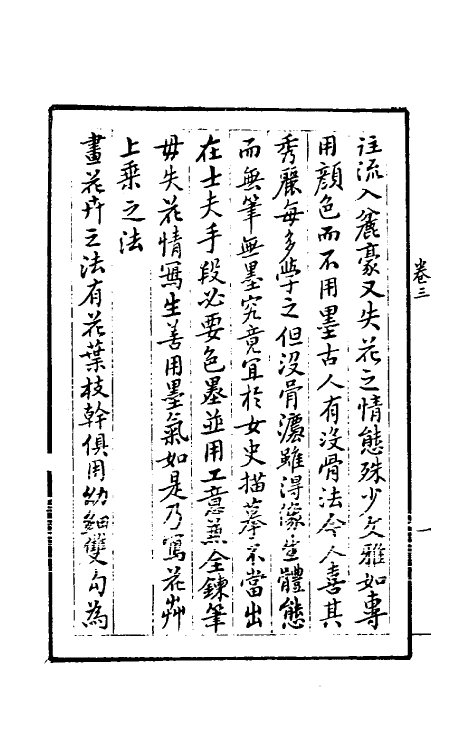 往流入麄豪又失花之情態殊少文雅如專
用顔色而不用墨古人有沒骨法今人喜其
秀麗每多學之但沒骨濃雖淂像生體態
而無筆無墨究竟宜於女史描摹不當出
在士夫手段必要色墨並用工意兼全鍊筆
毋失花情寫生善用墨氣如是乃寫花艸
上乘之法
畫花卉之法有花葉枝幹俱用幼細雙勾為
卷三
一